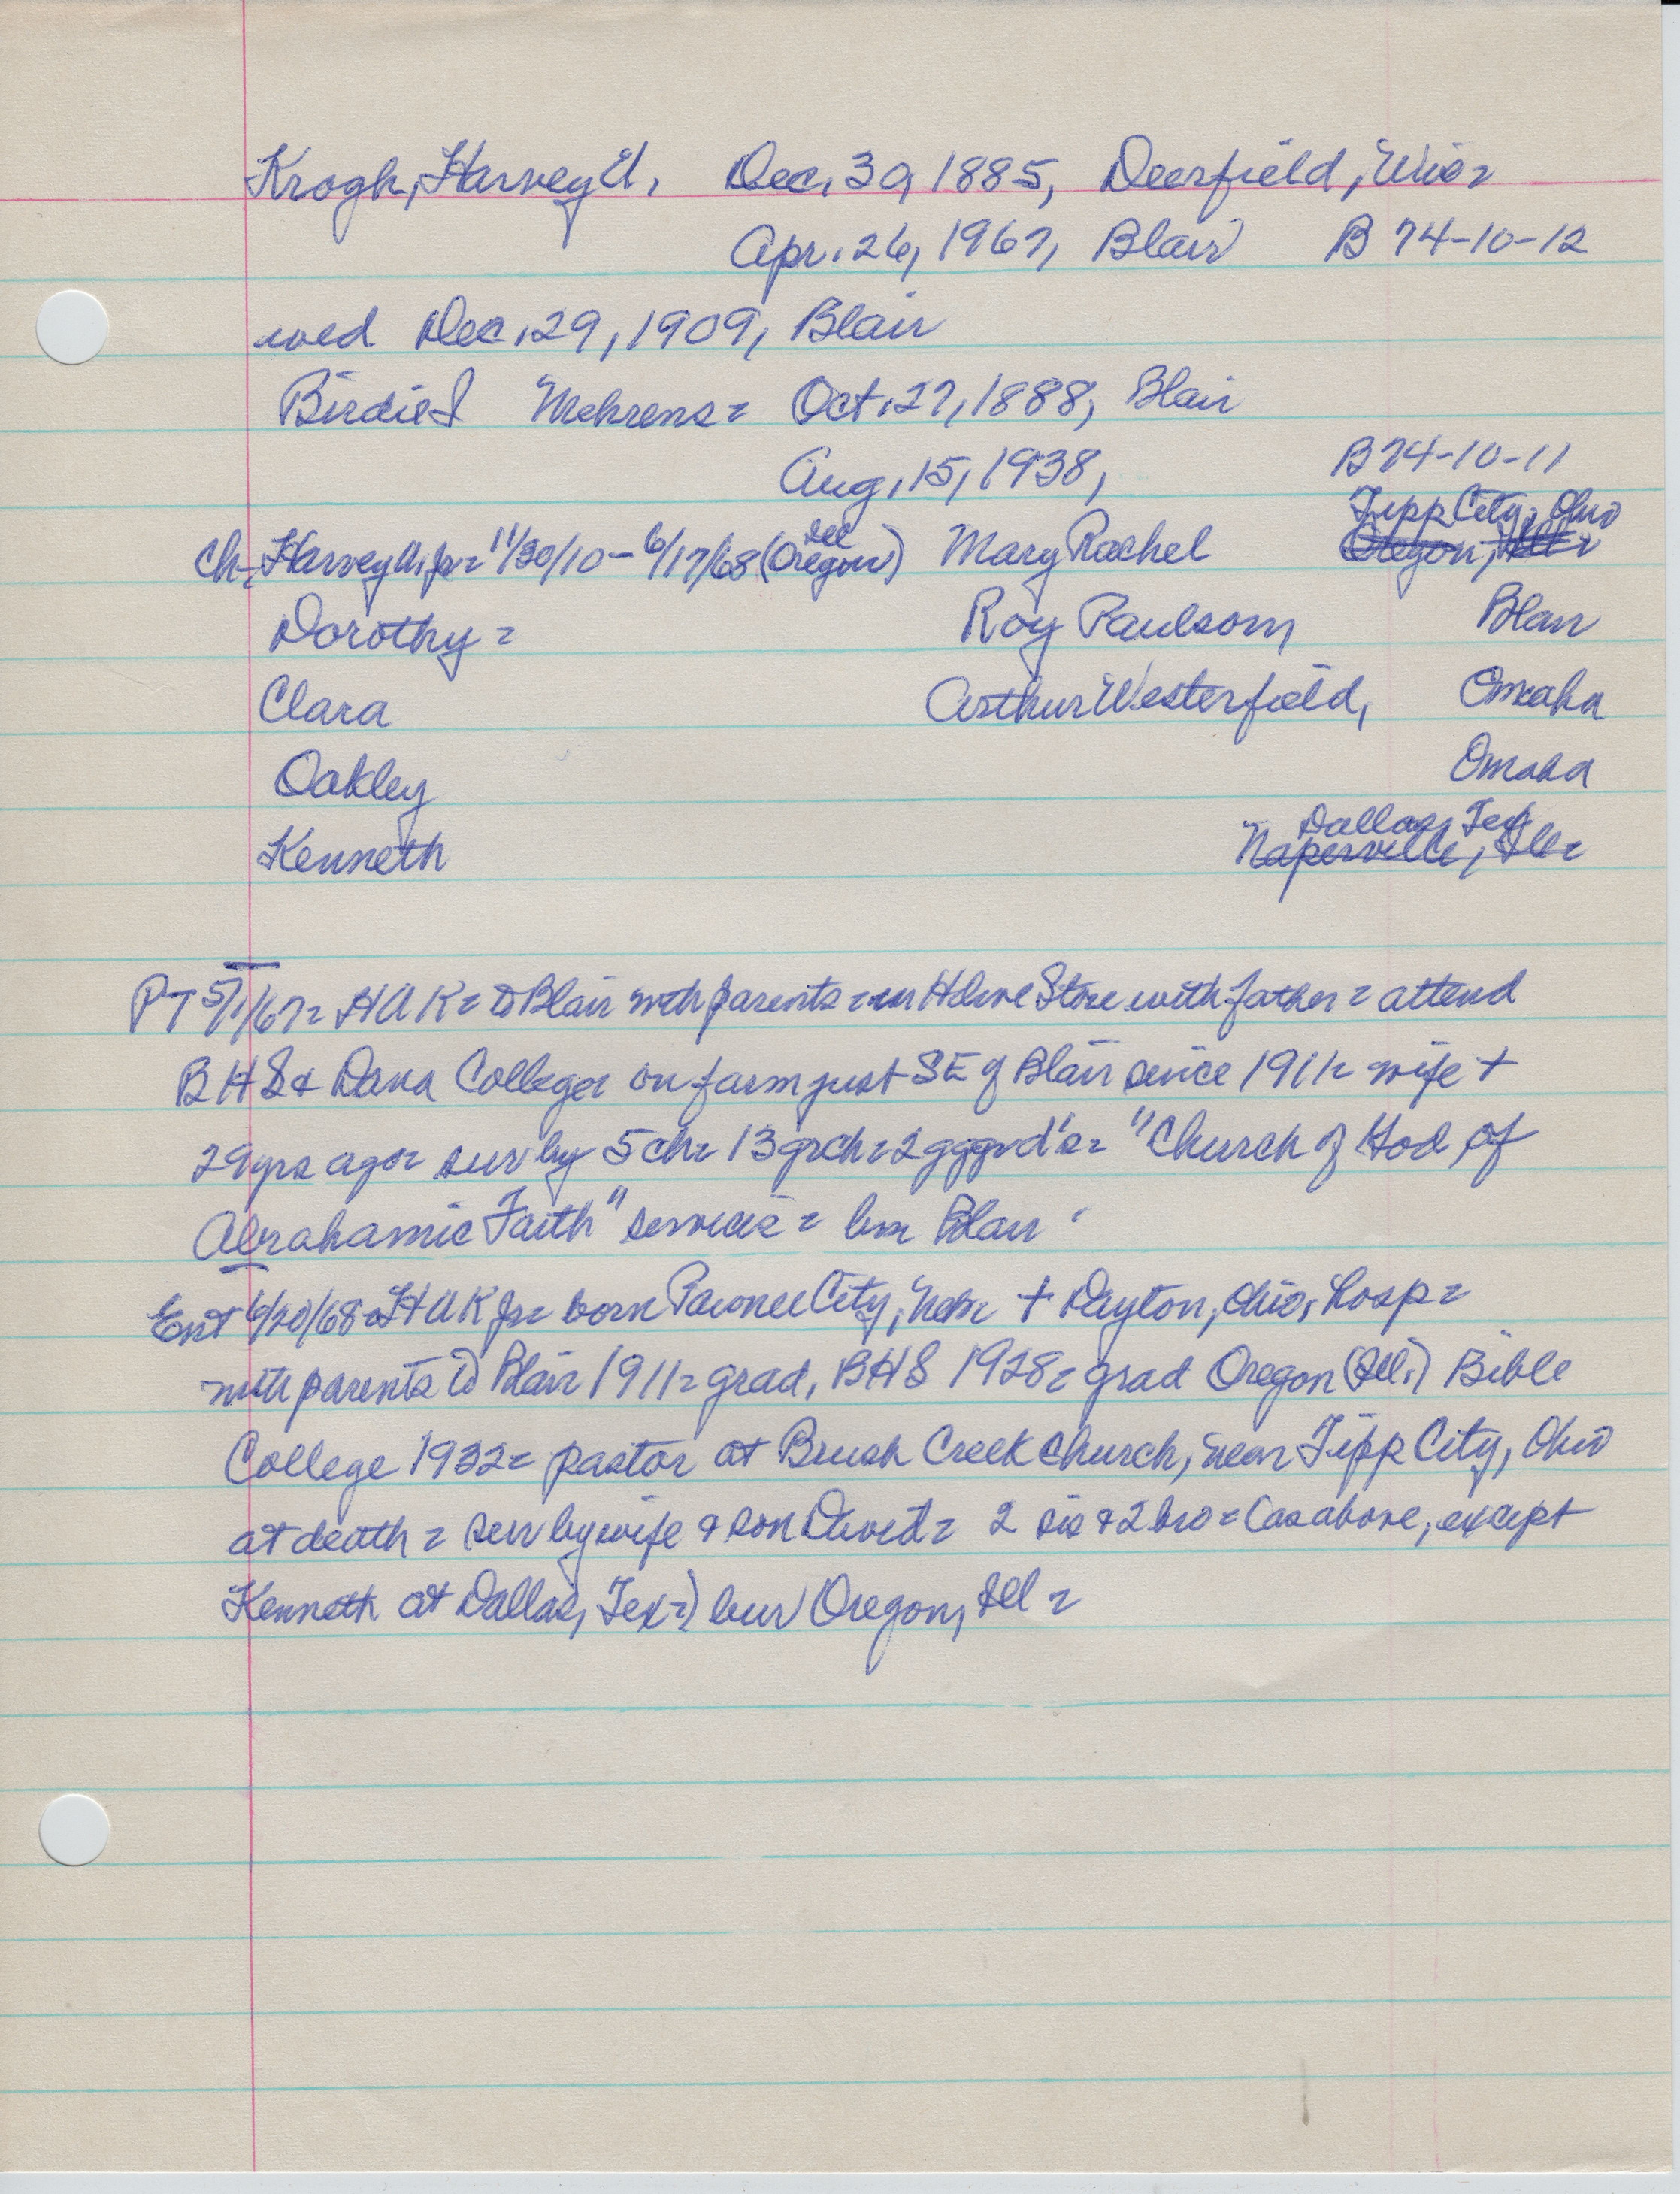 Krogh, Harvey U. Dec. 30, 1885, Deerfield, Wis =
Apr. 26, 1967, Blair B 74-10-12
wed Dec. 29, 1909, Blair
Birdie I Mehrens = Oct. 27, 1888, Blair
Aug. 15, 1938, B 74-10-11
Tipp City, Ohio
Ch, Harvey U. Jr = 11/30/10 - 6/17/68 (Oregon Ill) Mary Rachel Oregon, Ill =
Dorothy = Roy Paulsom, Blair
Clara Arthur Westerfield, Omaha
Oakley Omaha
Dallas, Tex
Kenneth Naperville, Ill =
PT 5/1/67 = H U K = to Blair with parents = in Hdwe Store with father = attend
B H S & Dana College = on farm just SE of Blair since 1911 = wife +
29 yrs ago = surv by 5 ch = 13 grch = 2 gggrd's = "Church of God of
Abrahamic Faith" services = bur Blair
Ent 6/20/68 = H U K Jr = born Pawnee City, Nebr + Dayton, Ohio, hosp =
with parents to Blair 1911 = grad, BHS 1928 = grad Oregon (Ill.) Bible
College 1932 = pastor at Brush Creek Church, near Tipp City, Ohio
at death = surv by wife & son David = 2 sis & 2 bro = (as above, except
Kenneth at Dallas, Tex =) bur Oregon, Ill =